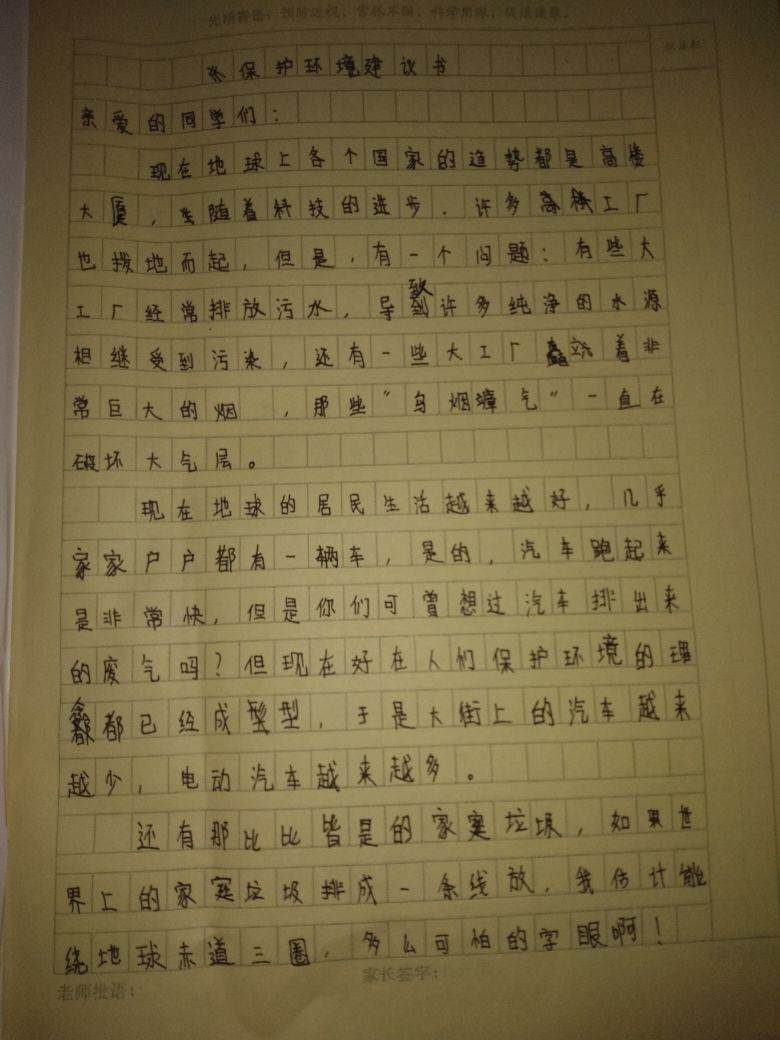 光明寄语：预防近视，常抓不懈，科学用眼，促进健康。
批注栏
保护环境建议书
亲爱的同学们：
现在地球上各个国家的造势都是高楼
大厦，随着科技的进步．许多高楼工厂
也拨地而起，但是，有一个问题：有些大
工厂经常排放污水，导致许多纯净的水源
相继受到污染，还有一些大工厂 着非
常巨大的烟 ，那些“乌烟瘴气”一直在
破坏大气层。
现在地球的居民生活越来越好，几乎
家家户户都有一辆车，是的，汽车跑起来
是非常快，但是你们可曾想过汽车排出来
的废气吗？但现在好在人们保护环境的理
念都已经成型，于是大街上的汽车越来
越少，电动汽车越来越多。
还有那比比皆是的家宽垃圾，如果世
界上的家宽垃圾排成一条线放，我估计能
绕地球赤道三圈，多么可怕的字眼啊！
家长签字：
老师批语：